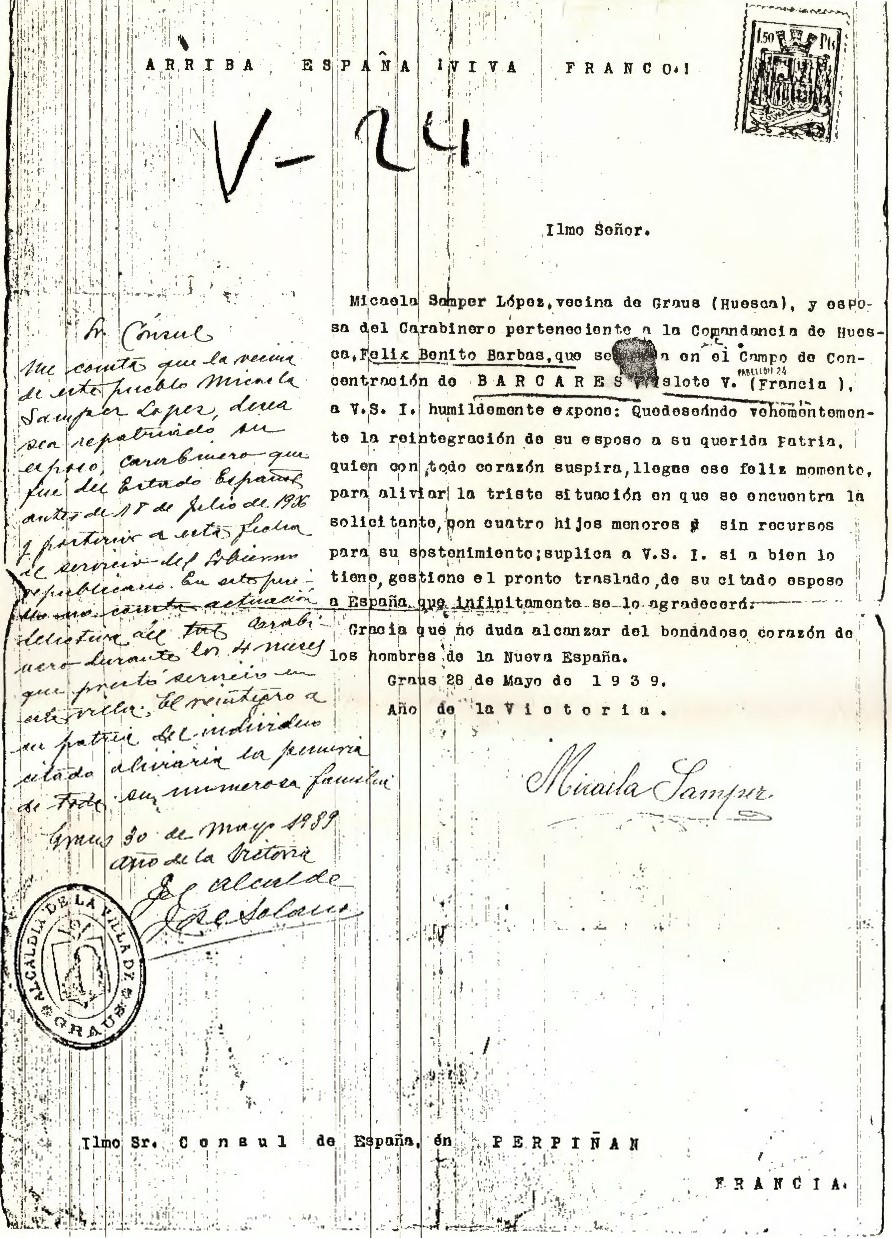 ARRIBA ESPAÑA ¡VIVA FRANCO!
1.50 Pts
V- 24
Ilmo Señor.
Micaela Samper López, vecina de Graus (Huesca), y espo-
sa del Carabinero perteneciente a la Comandancia de Hues-
ca, Felix Benito Barbas, que se en el Campo de Con-
PABELLON 24
centración de BARCARES islote V. (Francia ),
a V.S. I. humildemente expone: Quedeseándo vehementemen-
te la reintegración de su esposo a su querida Patria,
quien con todo corazón suspira, llegue ese feliz momento,
para aliviar la triste situación en que se encuentra la
solicitante, con cuatro hijos menores y sin recursos
para su sostenimiento; suplica a V.S. I. si a bien lo
tiene, gestione el pronto traslado, de su citado esposo
a España que infinitamente se lo agradecerá.
Gracia que no duda alcanzar del bondadoso corazón de
los hombres de la Nueva España.
Graus 28 de Mayo de 1939.
Año de la Victoria.
Micaela Samper
Sr. Cónsul
Me consta que la vecina
de este pueblo Micaela
Samper Lopez, desea
sea repatriado su
esposo, carabinero que
fué del Estado Español
antes de 18 de Julio de 1936
y posterior a esta fecha
al servicio del Gobierno
republicano. En esta
no consta actuación
delictiva del tal carabi-
nero durante los 4 meses
que prestó servicio en
esta villa. El reintegro a
su patria del individuo
citado aliviaria la penuria
de toda su numerosa familia
Graus 30 de Mayo 1939
año de la Victoria
El Alcalde
Jose Solano
ALCALDIA DE LA VILLA DE GRAUS
Ilmo Sr. Consul de España, en PERPIÑAN
FRANCIA.